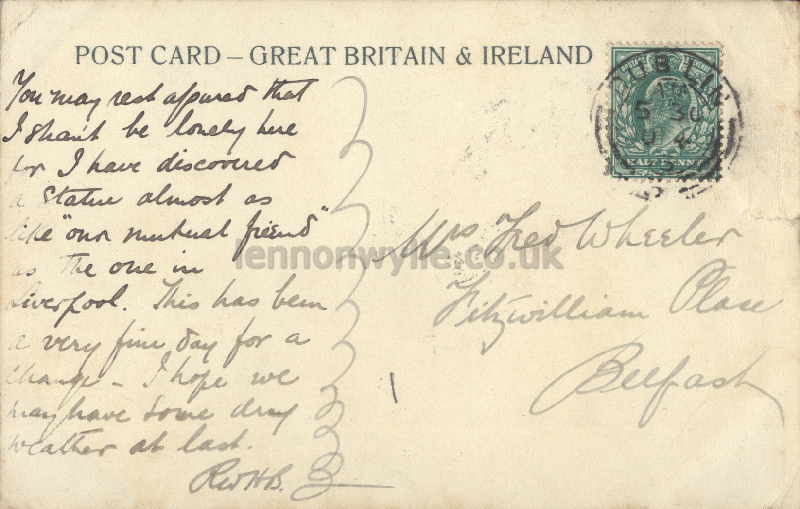 POST CARD – GREAT BRITAIN & IRELAND
You may rest assured that
I shan't be lonely here
for I have discovered
a statue almost as
like "our mutual friend"
as the one in
Liverpool. This has been
a very fine day for a
change – I hope we
may have some dry
weather at last.
RWHB.
DUBLIN
5 30
HALF PENNY
Mrs Fred Wheeler
Fitzwilliam Place
Belfast
lennonwylie.co.uk